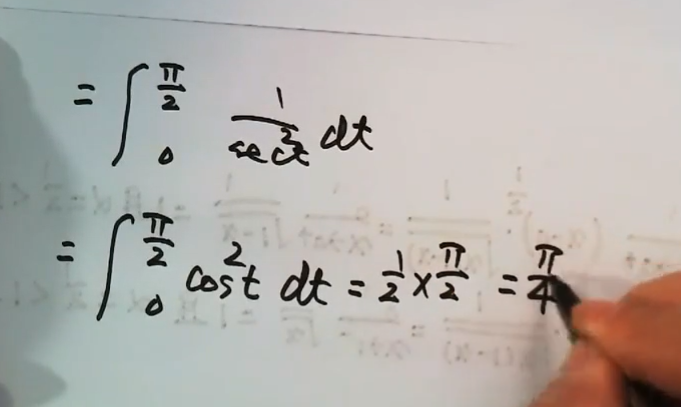 = ∫₀^(π/2) 1/sec²t dt
= ∫₀^(π/2) cos²t dt = 1/2 × π/2 = π/4